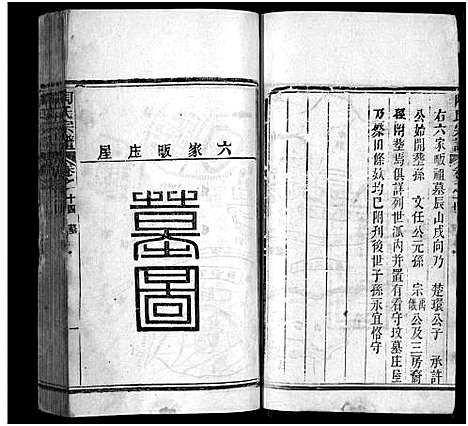 右六家畈祖墓辰山戌向乃 楚環公子 承許
公始開塋孫 文任公元孫 宗禹儀公及三房裔
附塋焉俱詳列世派內并置有看守坟墓庄屋
乃祭田條欵均已附刊後世子孫永宜恪守
六家畈庄屋
墓圖
陶氏宗譜 卷之十四 墓 一